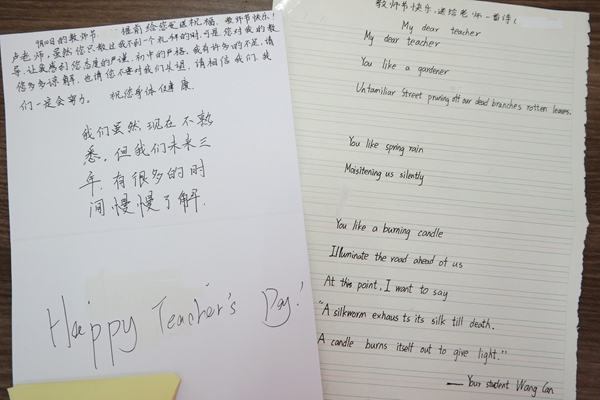 9月10日的教师节, 提前给您发送祝福, 教师节快乐!
卢老师,虽然您只教过我不到一个礼拜的时间,可是您对我的教
导,让我感到您态度的严谨,初中的严格,我有许多的不足,请
您多多谅解,也请您不要对我们失望,请相信我们,我
们一定会努力。 祝您身体健康
我们虽然现在不熟
悉,但我们未来三
年,有很多的时
间慢慢了解.
Happy Teacher's Day!
教师节快乐,送给老师一首诗!
My dear teacher
My dear teacher
You like a gardener
Unfamiliar Street pruning off our dead branches rotten leaves.
You like spring rain
Moisitening us silently
You like a burning candle
Illuminate the road ahead of us
At this point, I want to say
"A silkworm exhausts its silk till death.
A candle burns itself out to give light."
—— Your student Wang Can